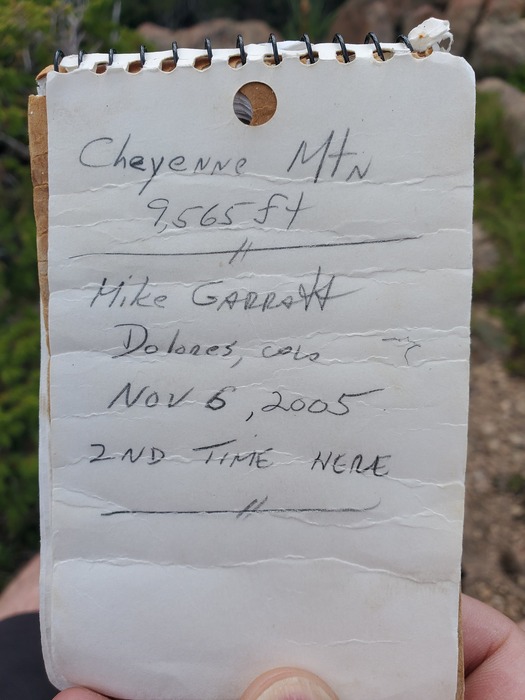 Cheyenne Mtn
9,565 ft
Mike Garratt
Dolores, colo
Nov 6, 2005
2ND TIME HERE